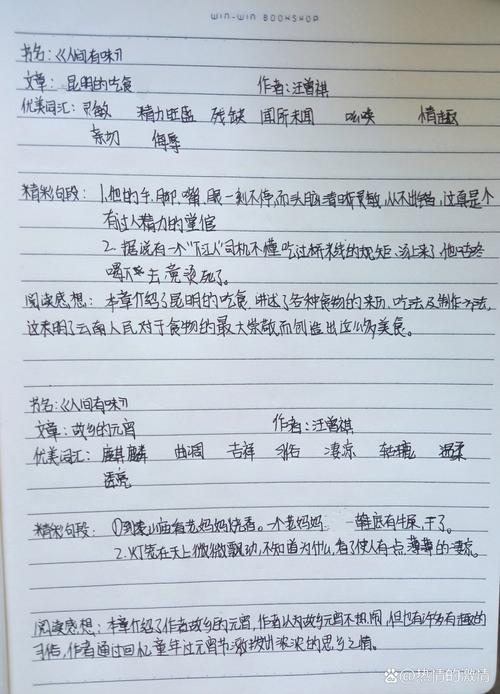 WIN-WIN BOOKSHOP
书名:《人间有味》
文章: 昆明的吃食 作者:汪曾祺
优美词汇: 灵敏 精力旺盛 残缺 闻所未闻 吆唤 情趣
亲切 侮辱
精彩句段: 1.他的手、脚、嘴、眼一刻不停,而头脑清晰灵敏,从不出错,这真是个
有过人精力的堂倌
2. 据说有一个"下江"司机不懂吃过桥米线的规矩,汤上来了,他咕咚
喝下去,竟烫死了。
阅读感想: 本章介绍了昆明的吃食,讲述了各种食物的来历、吃法及制作方法,
这表明了云南人民对于食物的最大崇敬而创造出这么多美食。
书名:《人间有味》
文章: 故乡的元宵 作者:汪曾祺
优美词汇: 麒麟 曲调 吉祥 凄凉 温柔
透亮
精彩句段: ①到 庙看老妈妈烧香。一个老妈妈 鞋底有牛屎,干了。
2.灯笼在天上微微飘动,不知道为什么,看了使人有点薄薄的凄凉。
阅读感想: 本章介绍了作者故乡的元宵,作者认为故乡元宵不热闹,但也有许多有趣的
习俗,作者通过回忆童年过元宵节 抒发出浓浓的思乡之情。
@热情的激情